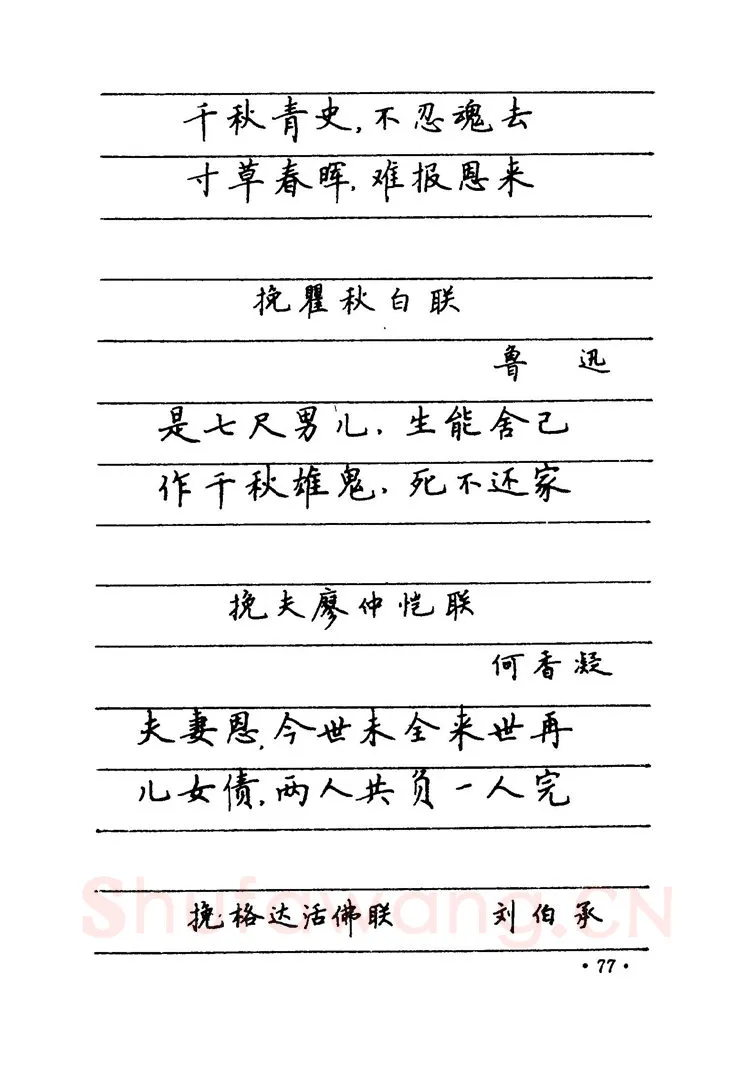 千秋青史，不忍魂去
寸草春晖，难报恩来
挽瞿秋白联
鲁 迅
是七尺男儿，生能舍己
作千秋雄鬼，死不还家
挽夫廖仲恺联
何香凝
夫妻恩，今世未全来世再
儿女债，两人共负一人完
挽格达活佛联 刘伯承
Shufawang.CN
·77·